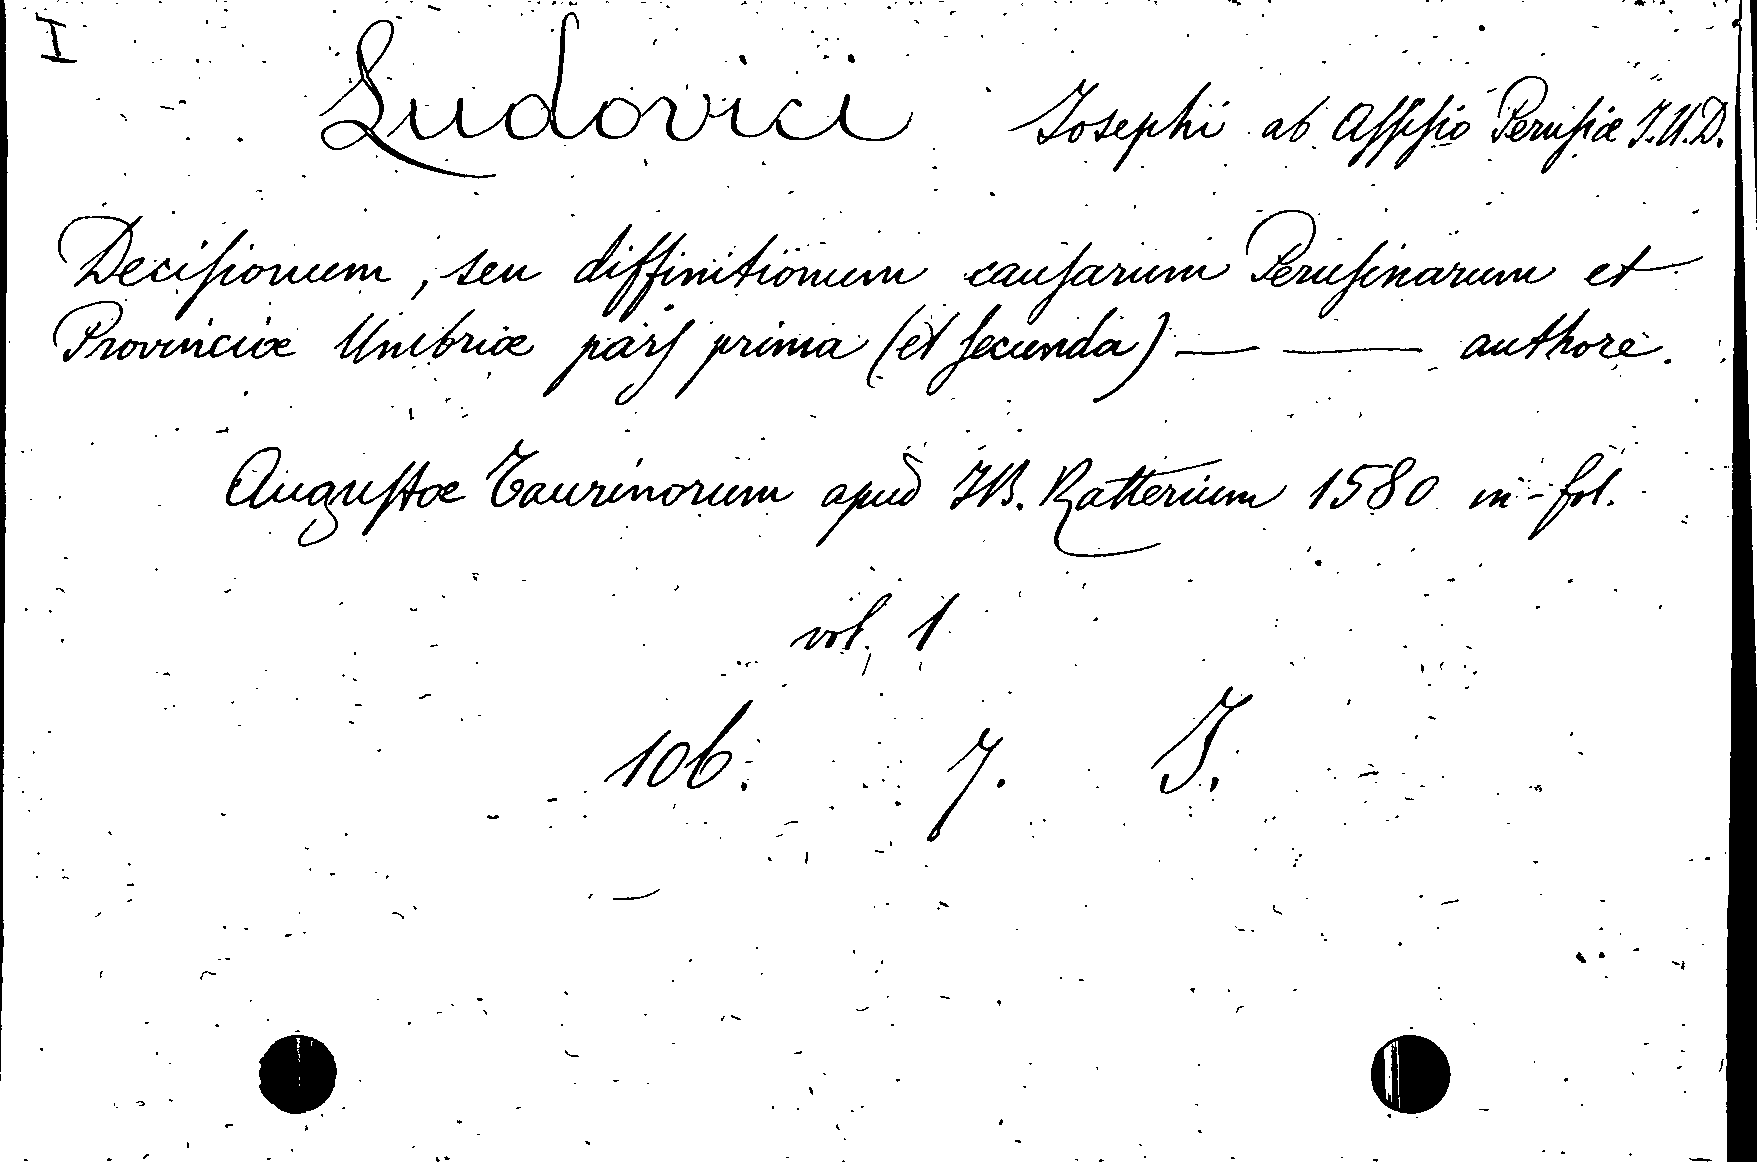 I
Ludovici Josephi ab Assisio Perusiæ J.U.D.
Decisionum, seu diffinitionum causarum Perusinarum et
Provinciæ Umbriæ pars prima (et secunda) — — authore.
Augustæ Taurinorum apud JB. Ratterium 1580 in-fol.
vol. 1
106. 7. J.